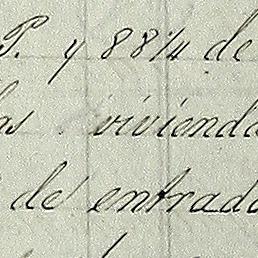 P. y 88 1/4 de
as vivienda
de entrada